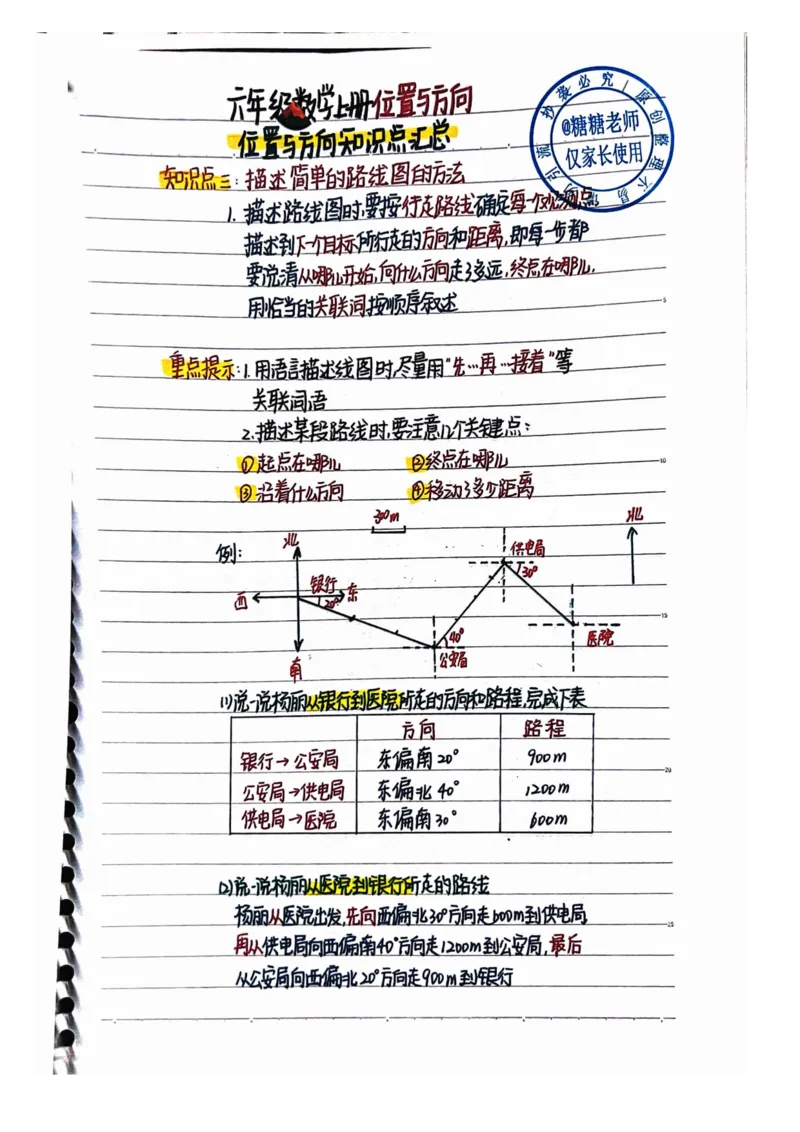 六年级数学上册位置与方向
位置与方向知识点汇总
抄袭必究
原创整理
@糖糖老师
仅家长使用
知识点三：描述简单的路线图的方法
1. 描述路线图时,要按行走路线确定每一个观测点,
描述到下一个目标所行走的方向和距离,即每一步都
要说清从哪儿开始,向什么方向走了多远,终点在哪儿,
用恰当的关联词按顺序叙述
5
重点提示:1.用语言描述线图时,尽量用"先…再…接着"等
关联词语
2.描述某段路线时,要注意几个关键点:
①起点在哪儿 ②终点在哪儿
10
③沿着什么方向 ④移动了多少距离
300m
北
例:
北
供电局
30°
银行
西
东
20°
15
40°
医院
公安局
南
(1)说一说杨丽从银行到医院所走的方向和路程,完成下表
方向 路程
银行→公安局 东偏南20° 900m
20
公安局→供电局 东偏北40° 1200m
供电局→医院 东偏南30° 600m
(2)说一说杨丽从医院到银行所走的路线
杨丽从医院出发,先向西偏北30°方向走600m到供电局,
25
再从供电局向西偏南40°方向走1200m到公安局,最后
从公安局向西偏北20°方向走900m到银行